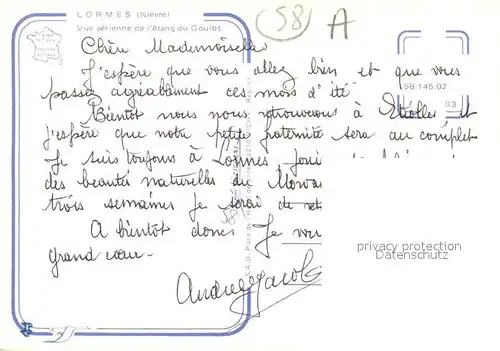 LORMES (Nièvre)
Vue aérienne de l'étang du Goulot.
58 A
Chère Mademoiselle
J'espère que vous allez bien et que vous
passez agréablement ces mois d'été
58.145.02
Bientôt nous nous retrouverons à Etiolles, et
83
j'espère que notre petite fraternité sera au complet
Je suis toujours à Lormes
des beautés naturelles du
trois semaines je serai de
58
A bientôt donc Je
privacy protection
Datenschutz
grand cœur.